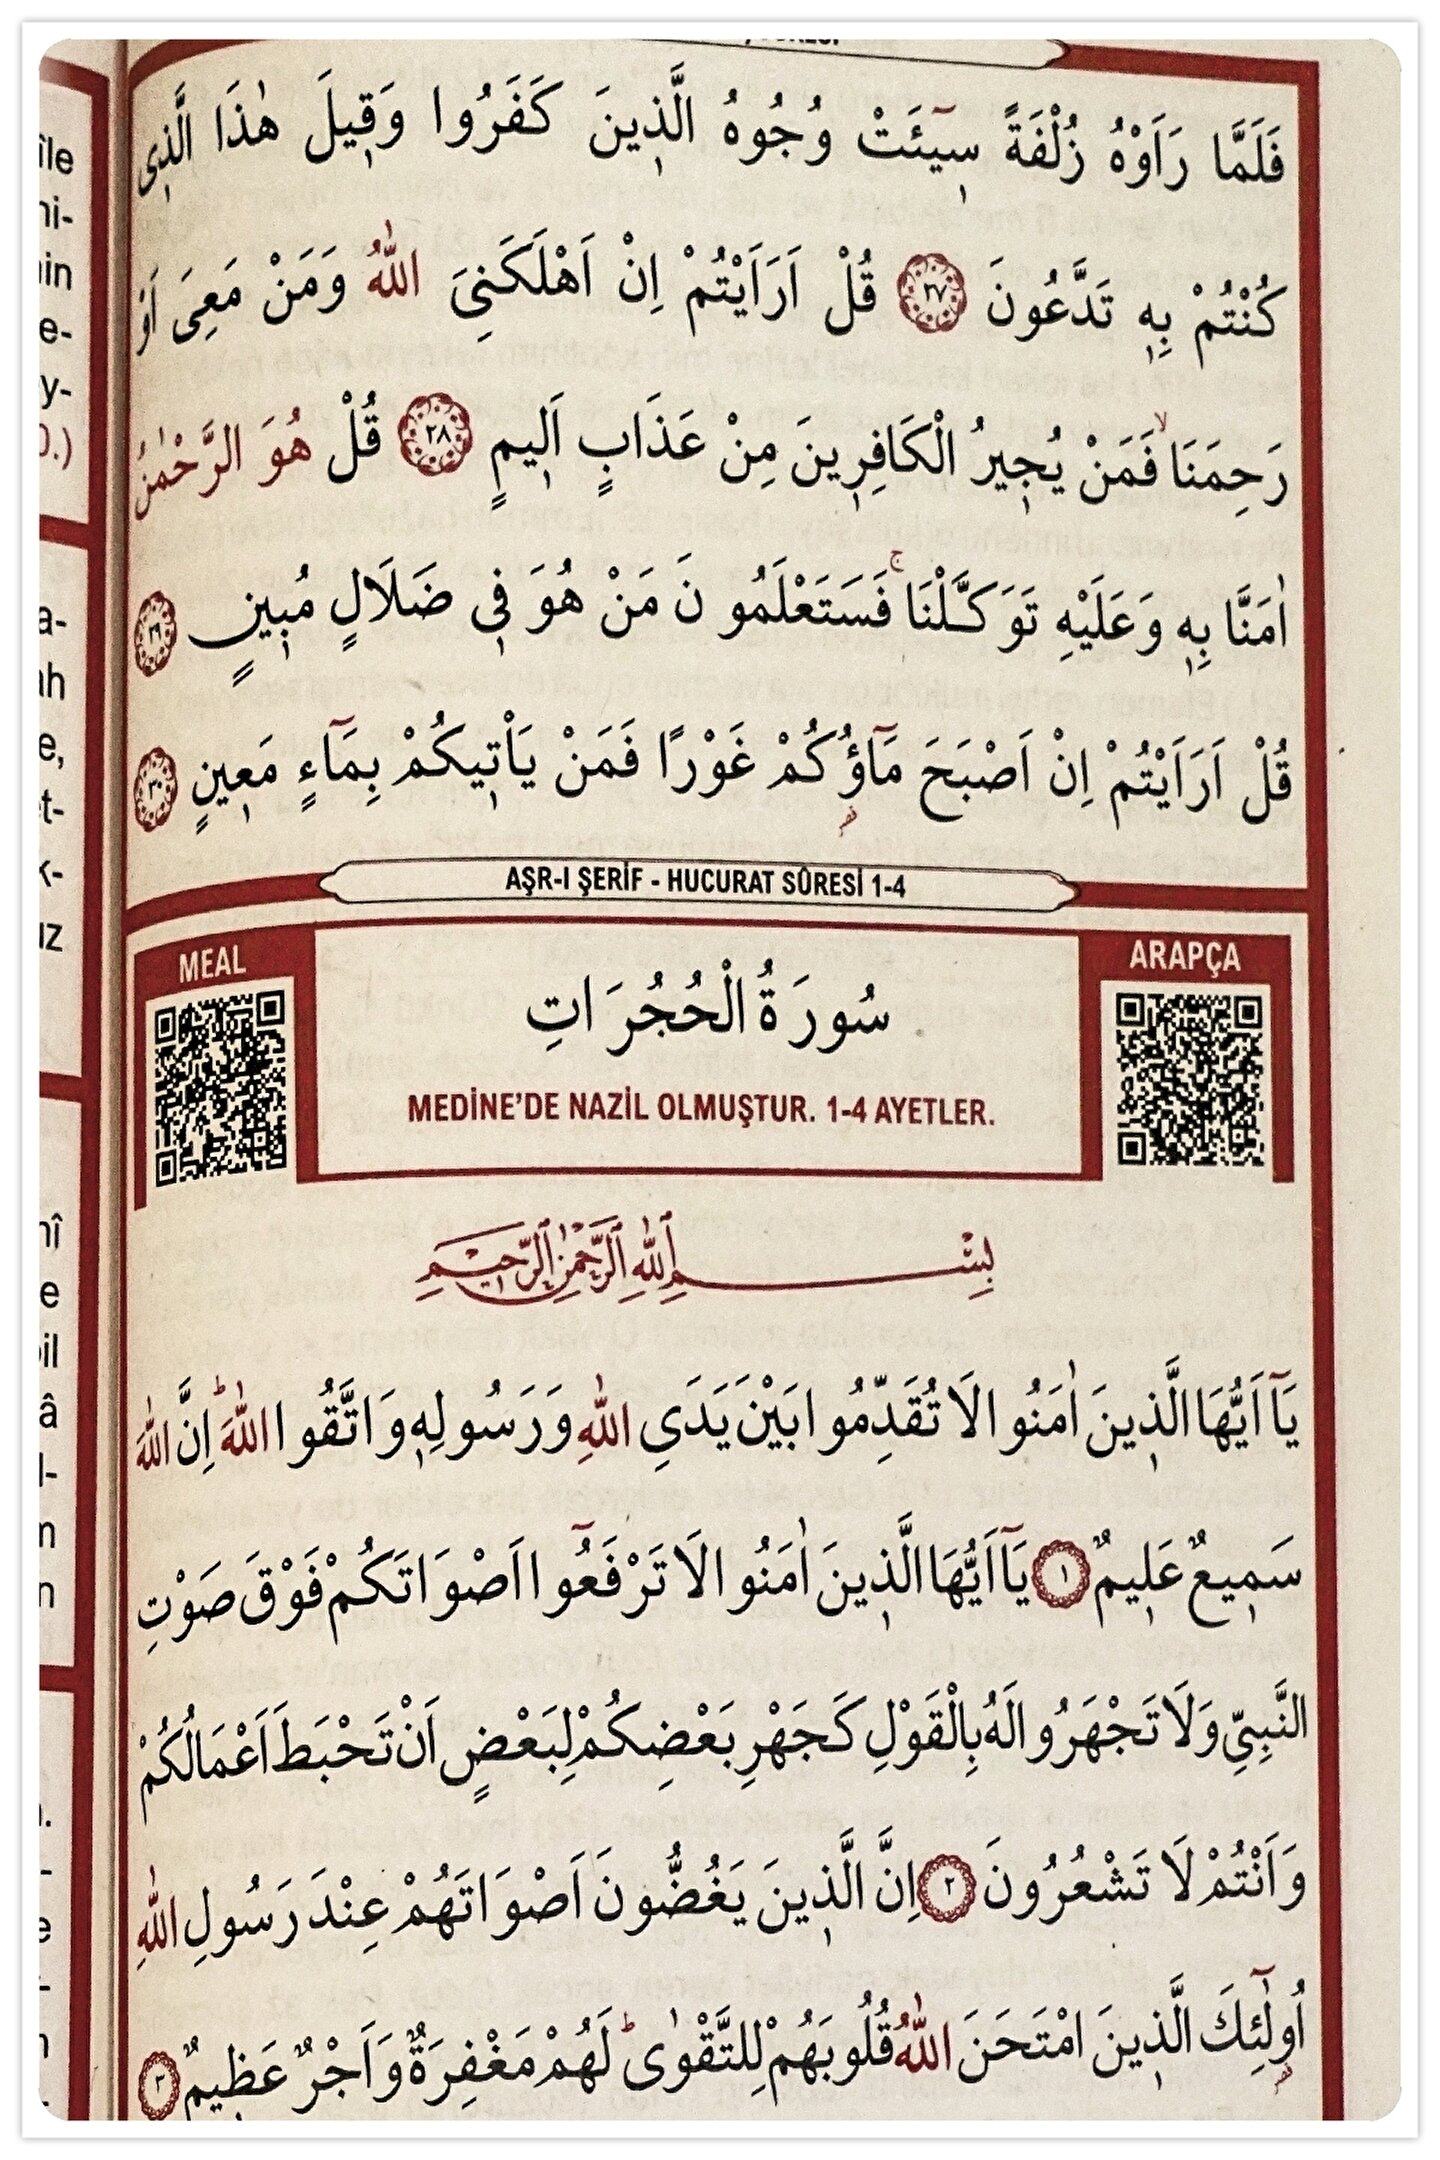 فَلَمَّا رَاَوْهُ زُلْفَةً سٖٓيئَتْ وُجُوهُ الَّذٖينَ كَفَرُوا وَقٖيلَ هٰذَا الَّذٖى
كُنْتُمْ بِهٖ تَدَّعُونَ ﴿٢٧﴾ قُلْ اَرَاَيْتُمْ اِنْ اَهْلَكَنِىَ اللّٰهُ وَمَنْ مَعِىَ اَوْ
رَحِمَنَاۙ فَمَنْ يُجٖيرُ الْكَافِرٖينَ مِنْ عَذَابٍ اَلٖيمٍ ﴿٢٨﴾ قُلْ هُوَ الرَّحْمٰنُ
اٰمَنَّا بِهٖ وَعَلَيْهِ تَوَكَّلْنَاۚ فَسَتَعْلَمُونَ مَنْ هُوَ فٖى ضَلَالٍ مُبٖينٍ ﴿٢٩﴾
قُلْ اَرَاَيْتُمْ اِنْ اَصْبَحَ مَٓاؤُكُمْ غَوْرًا فَمَنْ يَاْتٖيكُمْ بِمَٓاءٍ مَعٖينٍ ﴿٣٠﴾
AŞR-I ŞERİF - HUCURAT SÛRESİ 1-4
MEAL
ARAPÇA
سُورَةُ الْحُجُرَاتِ
MEDİNE’DE NAZİL OLMUŞTUR. 1-4 AYETLER.
بِسْمِ اللّٰهِ الرَّحْمٰنِ الرَّحٖيمِ
يَٓا اَيُّهَا الَّذٖينَ اٰمَنُوا لَا تُقَدِّمُوا بَيْنَ يَدَىِ اللّٰهِ وَرَسُولِهٖ وَاتَّقُوا اللّٰهَؕ اِنَّ اللّٰهَ
سَمٖيعٌ عَلٖيمٌ ﴿١﴾ يَٓا اَيُّهَا الَّذٖينَ اٰمَنُوا لَا تَرْفَعُٓوا اَصْوَاتَكُمْ فَوْقَ صَوْتِ
النَّبِىِّ وَلَا تَجْهَرُوا لَهُ بِالْقَوْلِ كَجَهْرِ بَعْضِكُمْ لِبَعْضٍ اَنْ تَحْبَطَ اَعْمَالُكُمْ
وَاَنْتُمْ لَا تَشْعُرُونَ ﴿٢﴾ اِنَّ الَّذٖينَ يَغُضُّونَ اَصْوَاتَهُمْ عِنْدَ رَسُولِ اللّٰهِ
اُولٰٓئِكَ الَّذٖينَ امْتَحَنَ اللّٰهُ قُلُوبَهُمْ لِلتَّقْوٰىؕ لَهُمْ مَغْفِرَةٌ وَاَجْرٌ عَظٖيمٌ ﴿٣﴾